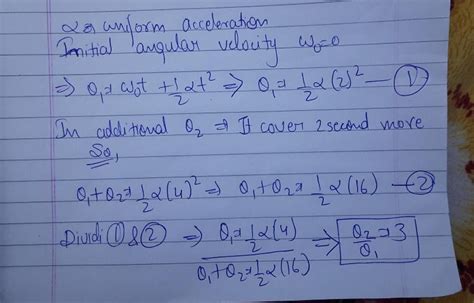 α ⇒ uniform acceleration
Initial angular velocity ω₀=0
⇒ θ₁ = ω₀t + 1/2 αt² ⇒ θ₁ = 1/2 α(2)² — ①
In additional θ₂ ⇒ It cover 2 second more
So,
θ₁+θ₂ = 1/2 α(4)² ⇒ θ₁+θ₂ = 1/2 α(16) — ②
Dividi ① & ② ⇒ θ₁ = 1/2 α(4) / θ₁+θ₂ = 1/2 α(16) ⇒ θ₂/θ₁ = 3